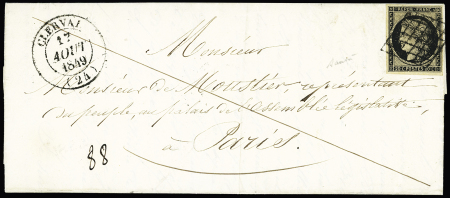 CLERVAL
17
AOUT
1849
(24)
REPUB. FRANC.
20 C POSTES 20 C
Monsieur
Monsieur de Moustier, représentant
du peuple, au palais de l'assemblée législative,
à Paris.
88